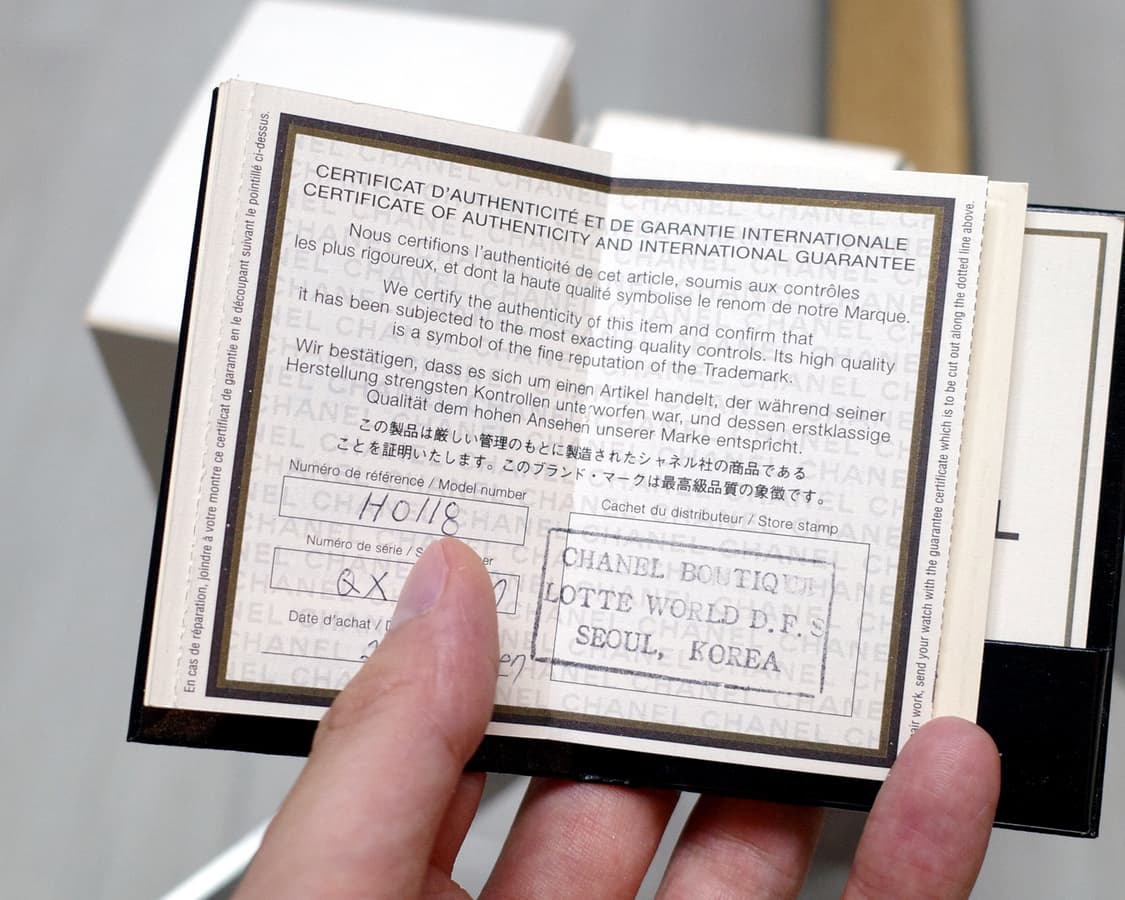 En cas de réparation, joindre à votre montre ce certificat de garantie en le découpant suivant le pointillé ci-dessus.
CERTIFICAT D'AUTHENTICITÉ ET DE GARANTIE INTERNATIONALE
CERTIFICATE OF AUTHENTICITY AND INTERNATIONAL GUARANTEE
Nous certifions l'authenticité de cet article, soumis aux contrôles
les plus rigoureux, et dont la haute qualité symbolise le renom de notre Marque.
We certify the authenticity of this item and confirm that
it has been subjected to the most exacting quality controls. Its high quality
is a symbol of the fine reputation of the Trademark.
Wir bestätigen, dass es sich um einen Artikel handelt, der während seiner
Herstellung strengsten Kontrollen unterworfen war, und dessen erstklassige
Qualität dem hohen Ansehen unserer Marke entspricht.
この製品は厳しい管理のもとに製造されたシャネル社の商品である
ことを証明いたします。このブランド・マークは最高級品質の象徴です。
Numéro de référence / Model number
H0118
Numéro de série /
QX
Date d'achat /
Cachet du distributeur / Store stamp
CHANEL BOUTIQUE
LOTTE WORLD D.F.S
SEOUL, KOREA
work, send your watch with the guarantee certificate which is to be cut out along the dotted line above.